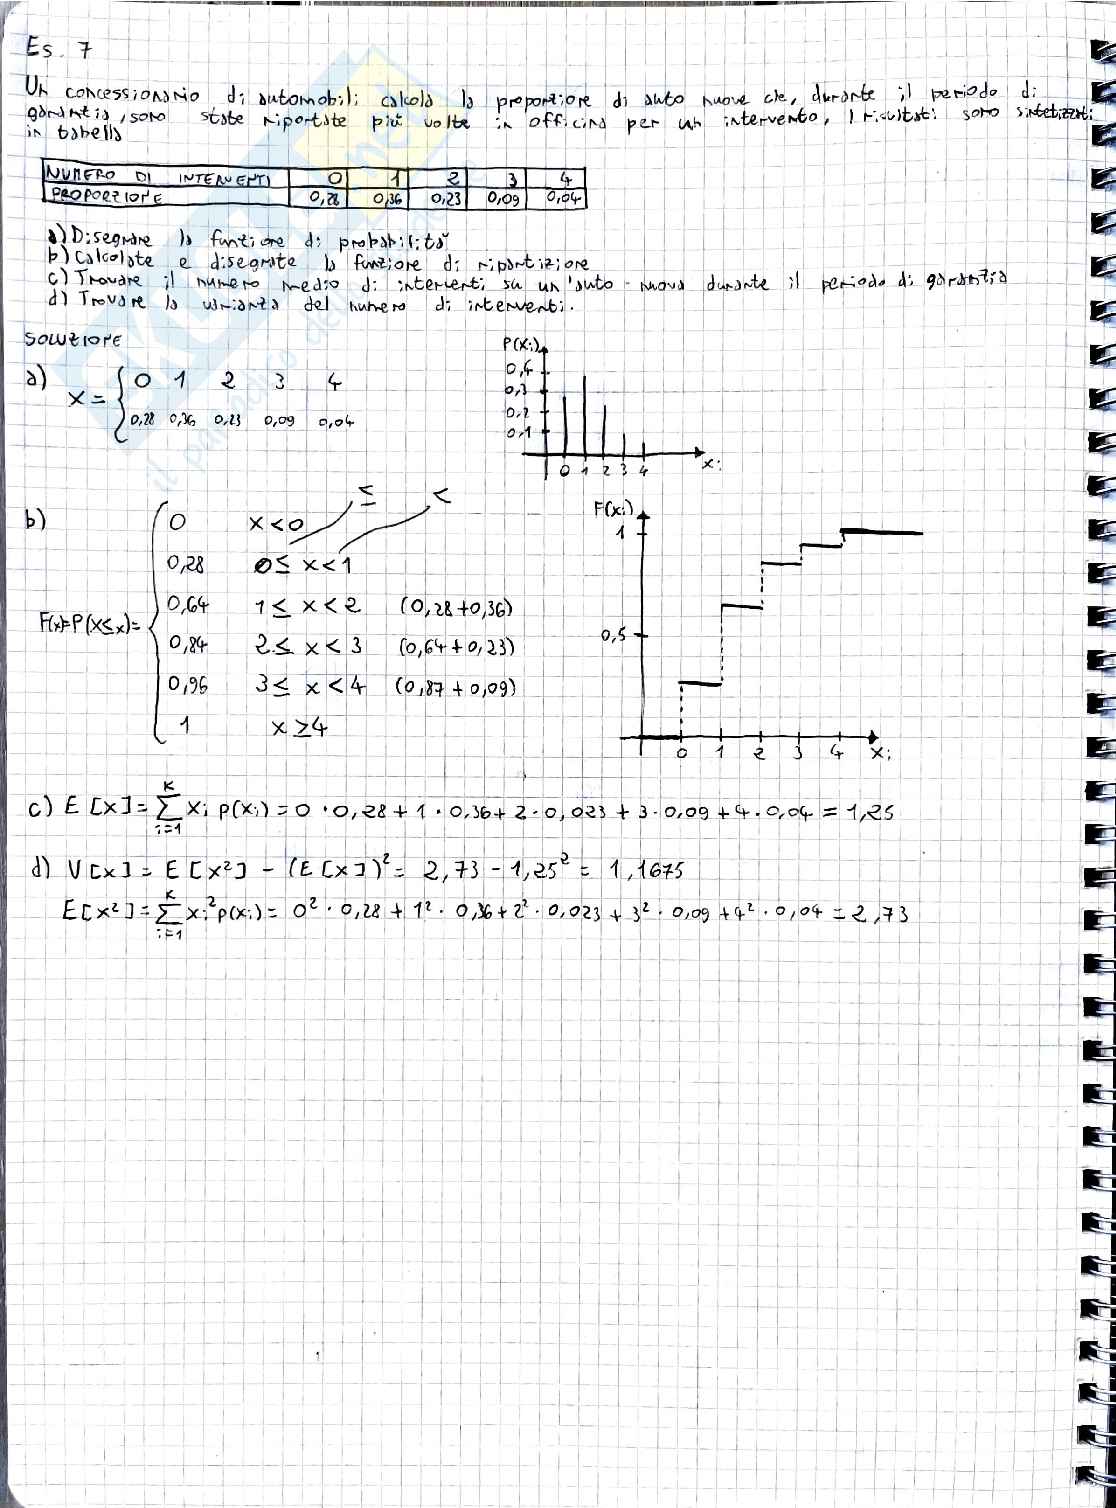 Es. 7
Un concessionario di automobili calcola la proporzione di auto nuove che, durante il periodo di
garanzia, sono state riportate più volte in officina per un intervento, I risultati sono sintetizzati
in tabella
NUMERO DI INTERVENTI 0 1 2 3 4
PROPORZIONE 0,28 0,36 0,23 0,09 0,04
a) Disegnare la funzione di probabilità
b) Calcolate e disegnate la funzione di ripartizione
c) Trovare il numero medio di interventi su un'auto nuova durante il periodo di garanzia
d) Trovare la varianza del numero di interventi.
SOLUZIONE
a) X = { 0 1 2 3 4
0,28 0,36 0,23 0,09 0,04
P(xi)
0,4
0,3
0,2
0,1
0 1 2 3 4 xi
≤ <
b)
0 x<0
0,28 0≤ x<1
0,64 1≤ x<2 (0,28+0,36)
F(x)=P(X≤x)=
0,84 2≤ x<3 (0,64+0,23)
0,96 3≤ x<4 (0,87+0,09)
1 x≥4
F(xi)
1
0,5
0 1 2 3 4 xi
c) E[x]= K∑i=1 xi p(xi) = 0·0,28+1·0,36+2·0,023+3·0,09+4·0,04=1,25
d) V[x]= E[x²] - (E[x])² = 2,73 - 1,25² = 1,1675
E[x²]= K∑i=1 xi² p(xi)= 0²·0,28+1²·0,36+2²·0,023+3²·0,09+4²·0,04=2,73